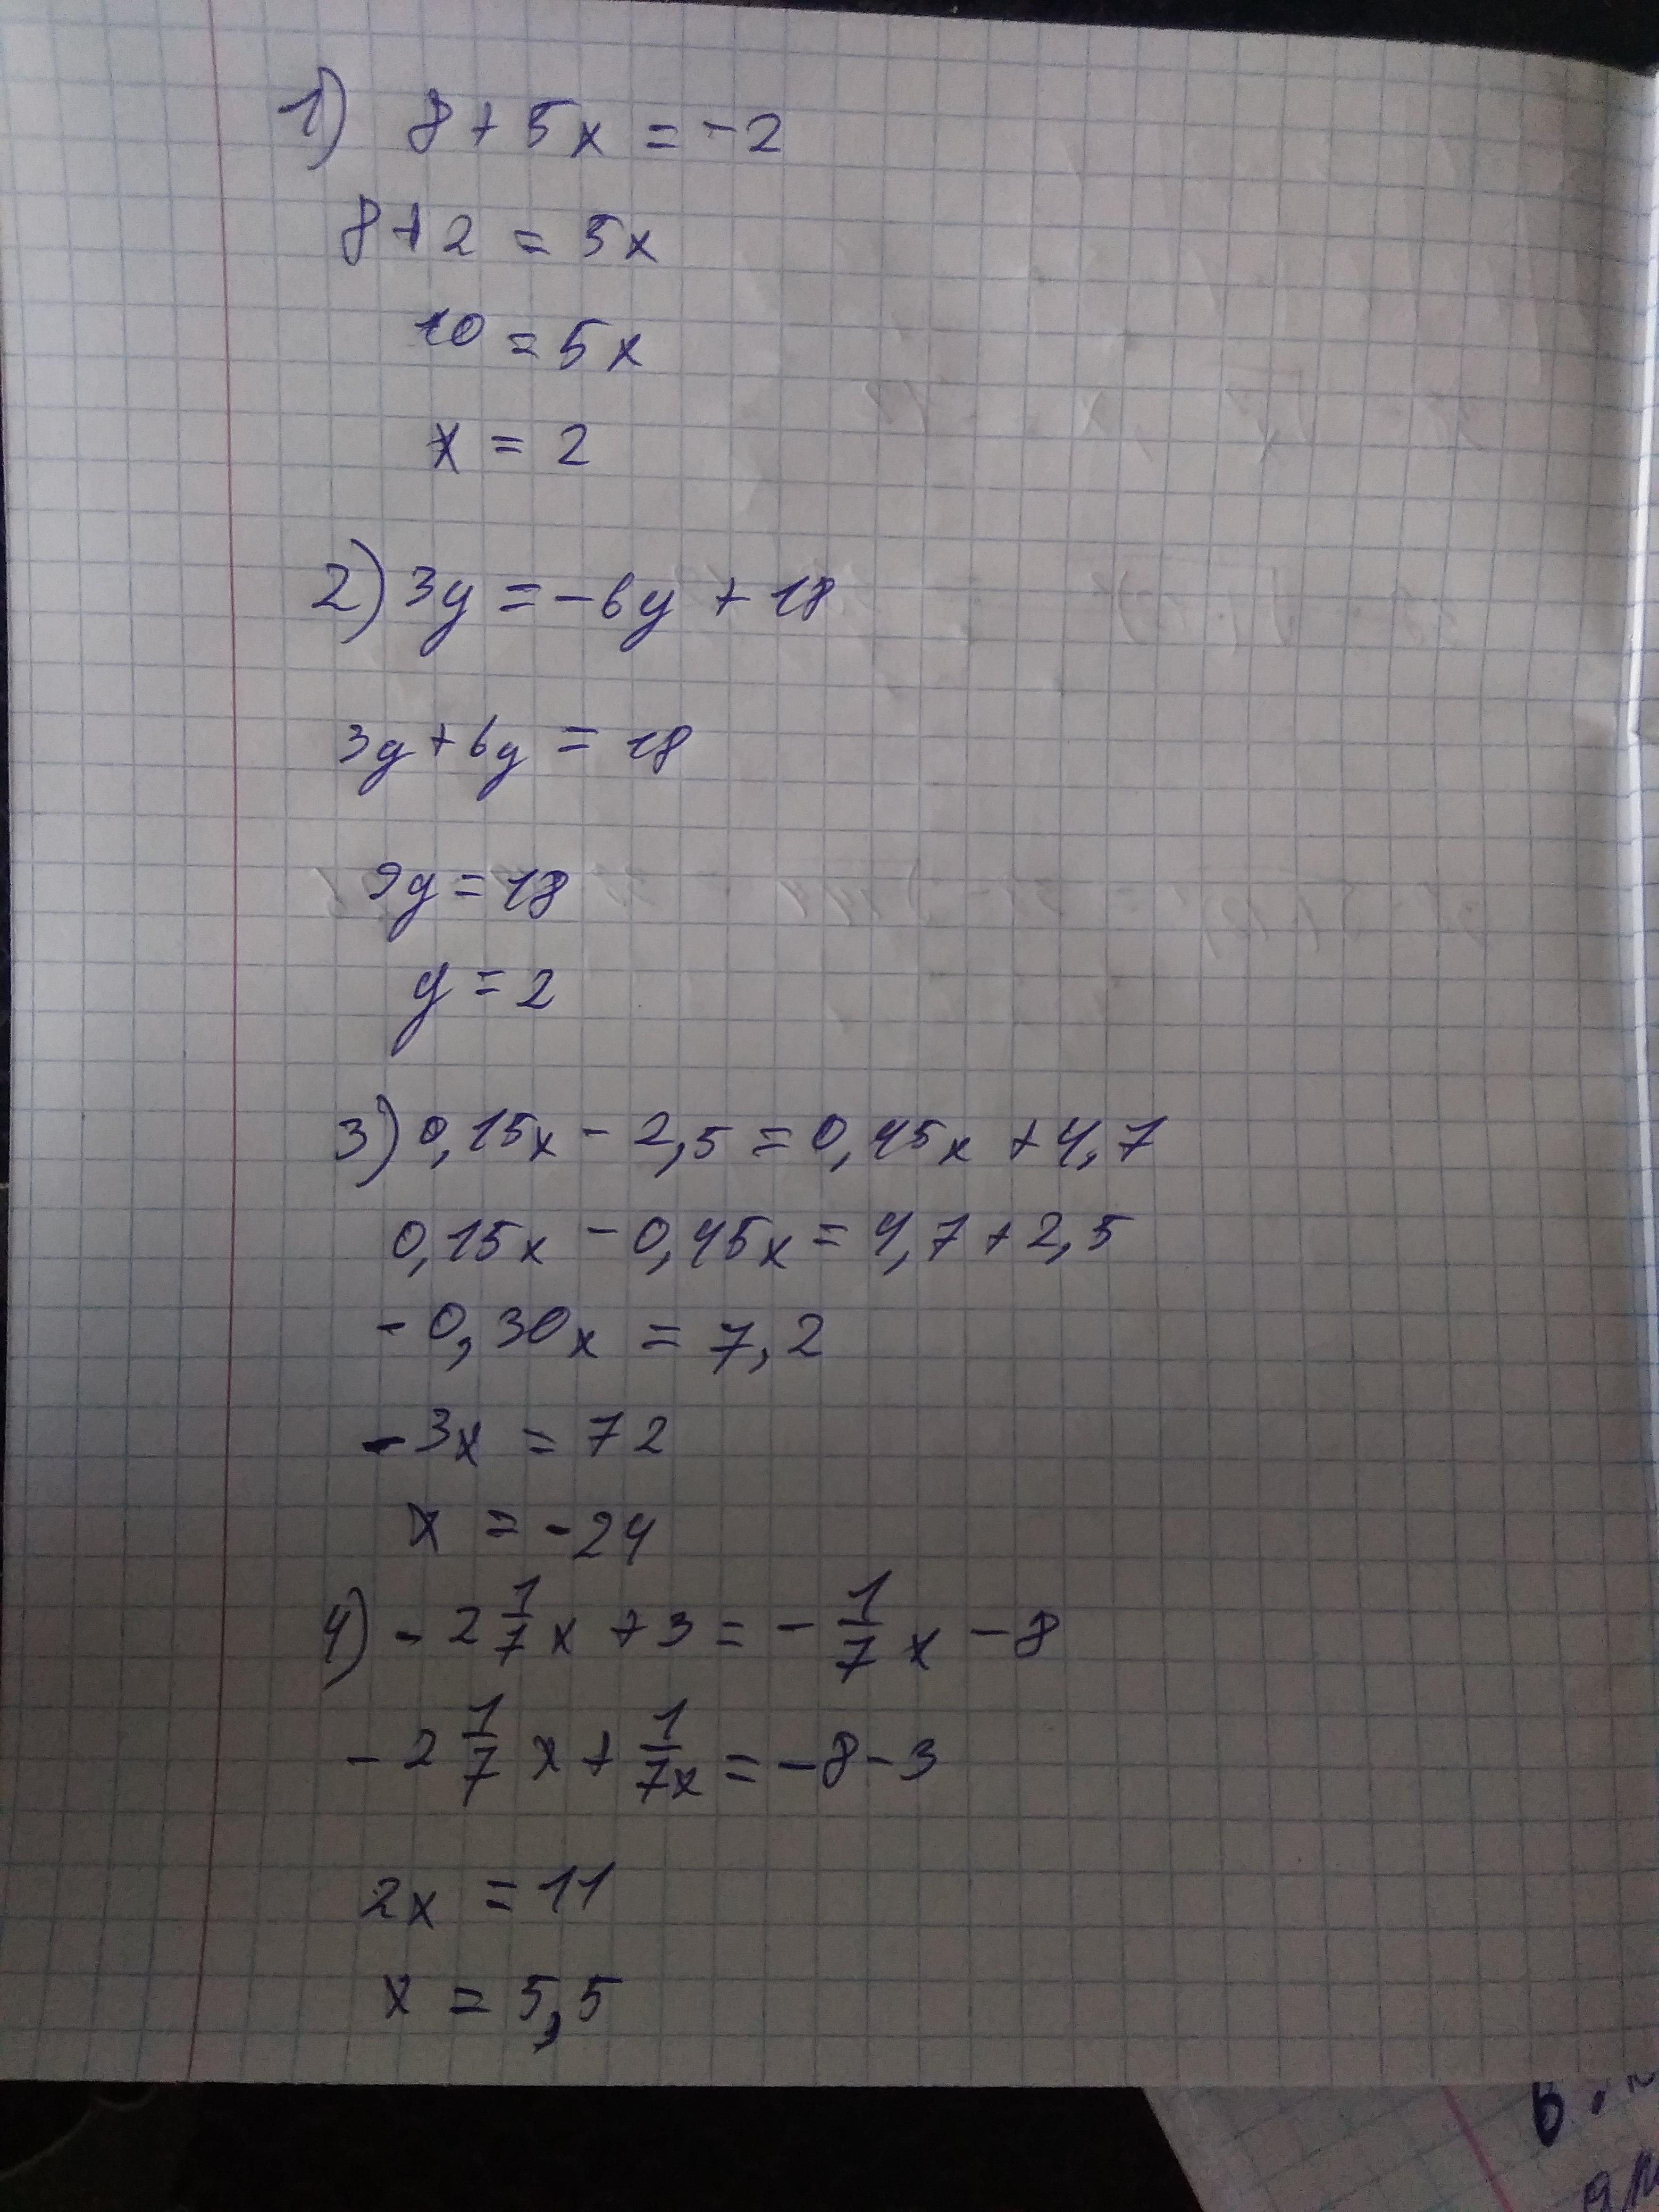 1) 8 + 5x = -2
8 + 2 = 5x
10 = 5x
x = 2
2) 3y = -6y + 18
3y + 6y = 18
9y = 18
y = 2
3) 0,15x - 2,5 = 0,45x + 4,7
0,15x - 0,45x = 4,7 + 2,5
-0,30x = 7,2
-3x = 72
x = -24
4) -2 1/7 x + 3 = - 1/7 x - 8
-2 1/7 x + 1/7x = -8 - 3
2x = 11
x = 5,5